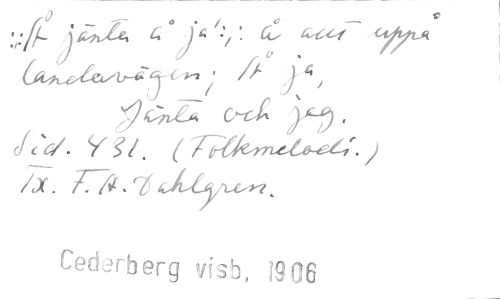 :,: Å jänta å ja':,: å allt uppå
landavägen; Å ja,
Jänta och jag.
Sid. 431. (Folkmelodi.)
Tx. F.A. Dahlgren.
Cederberg visb, 1906